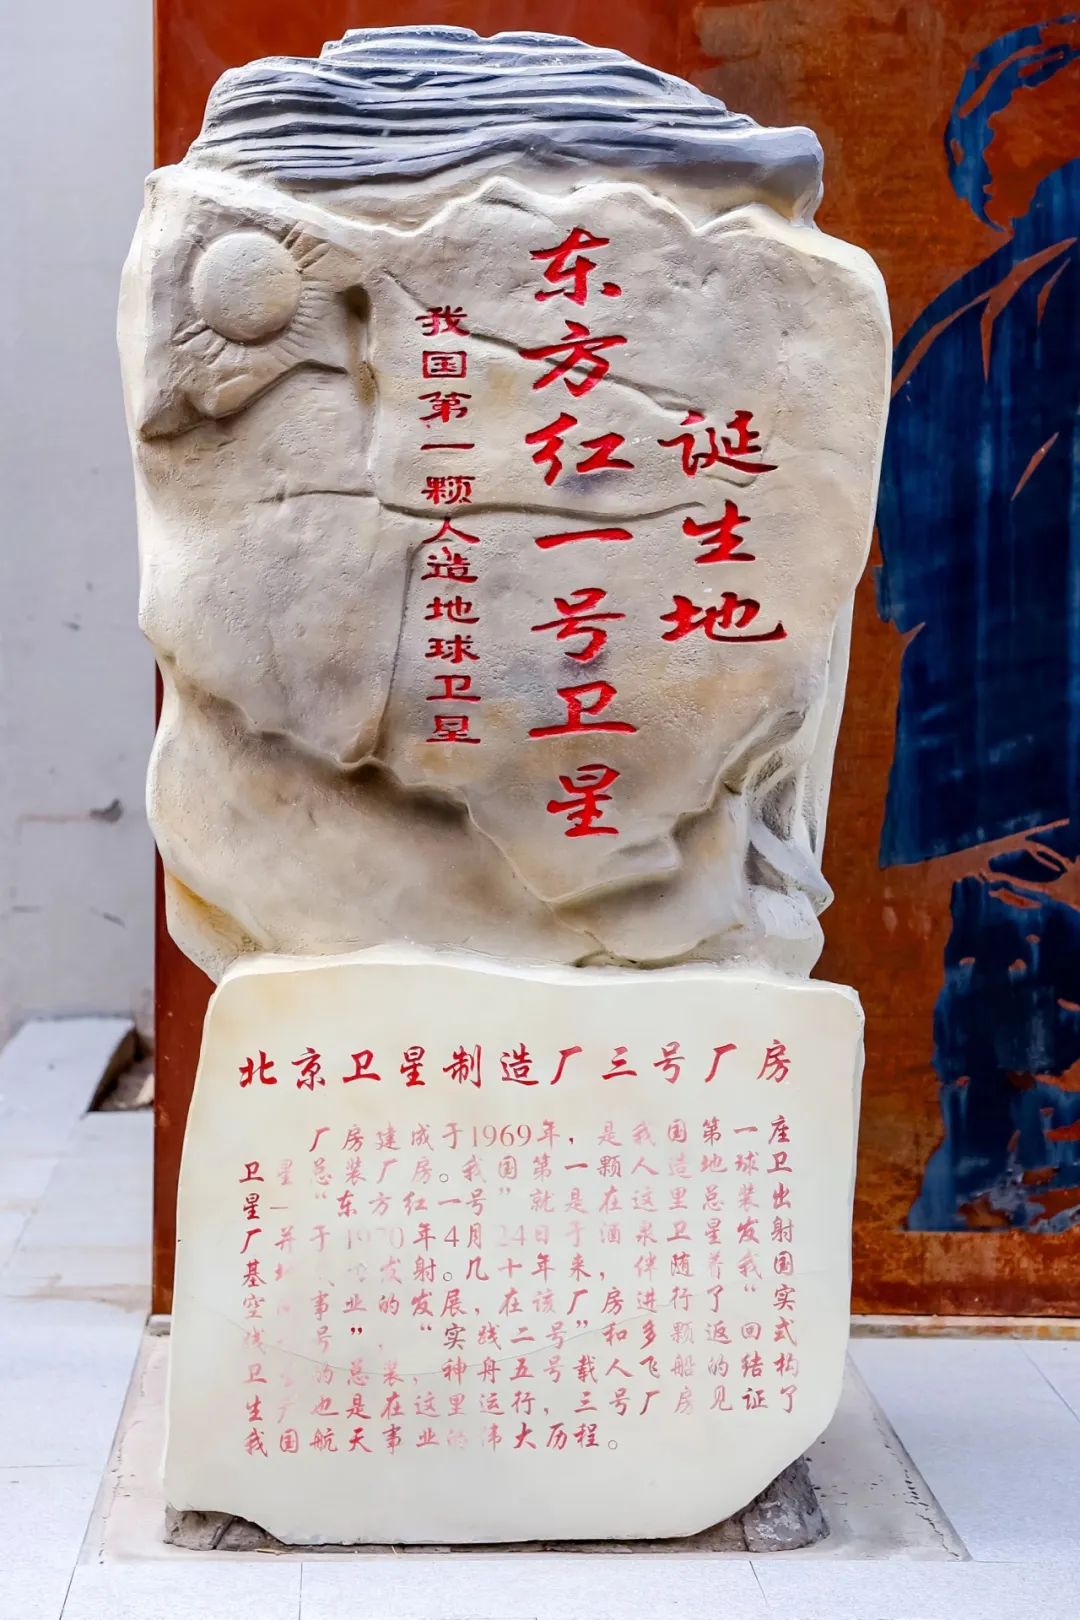 我国第一颗人造地球卫星
东方红一号卫星
诞生地
北京卫星制造厂三号厂房
厂房建成于1969年，是我国第一座
卫星总装厂房。我国第一颗人造地球卫
星—“东方红一号”就是在这里总装出
厂并于1970年4月24日于酒泉卫星发射
基发射。几十年来，伴随着我国
空间事业的发展，在该厂房进行了“实
践号”，“实践二号”和多颗返回式
卫星的总装，神舟五号载人飞船的结构
生产也是在这里运行，三号厂房见证了
我国航天事业的伟大历程。